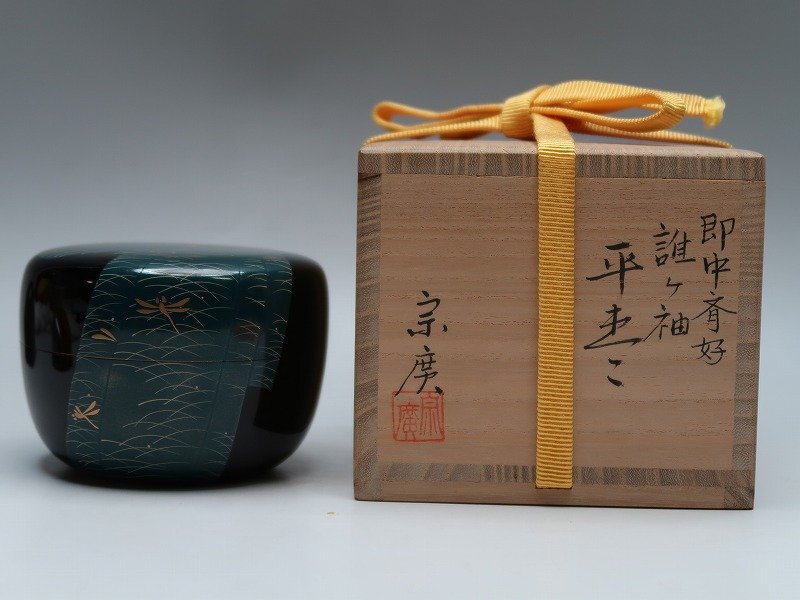 即中斎好
誰ヶ袖
平棗
宗廣
宗廣